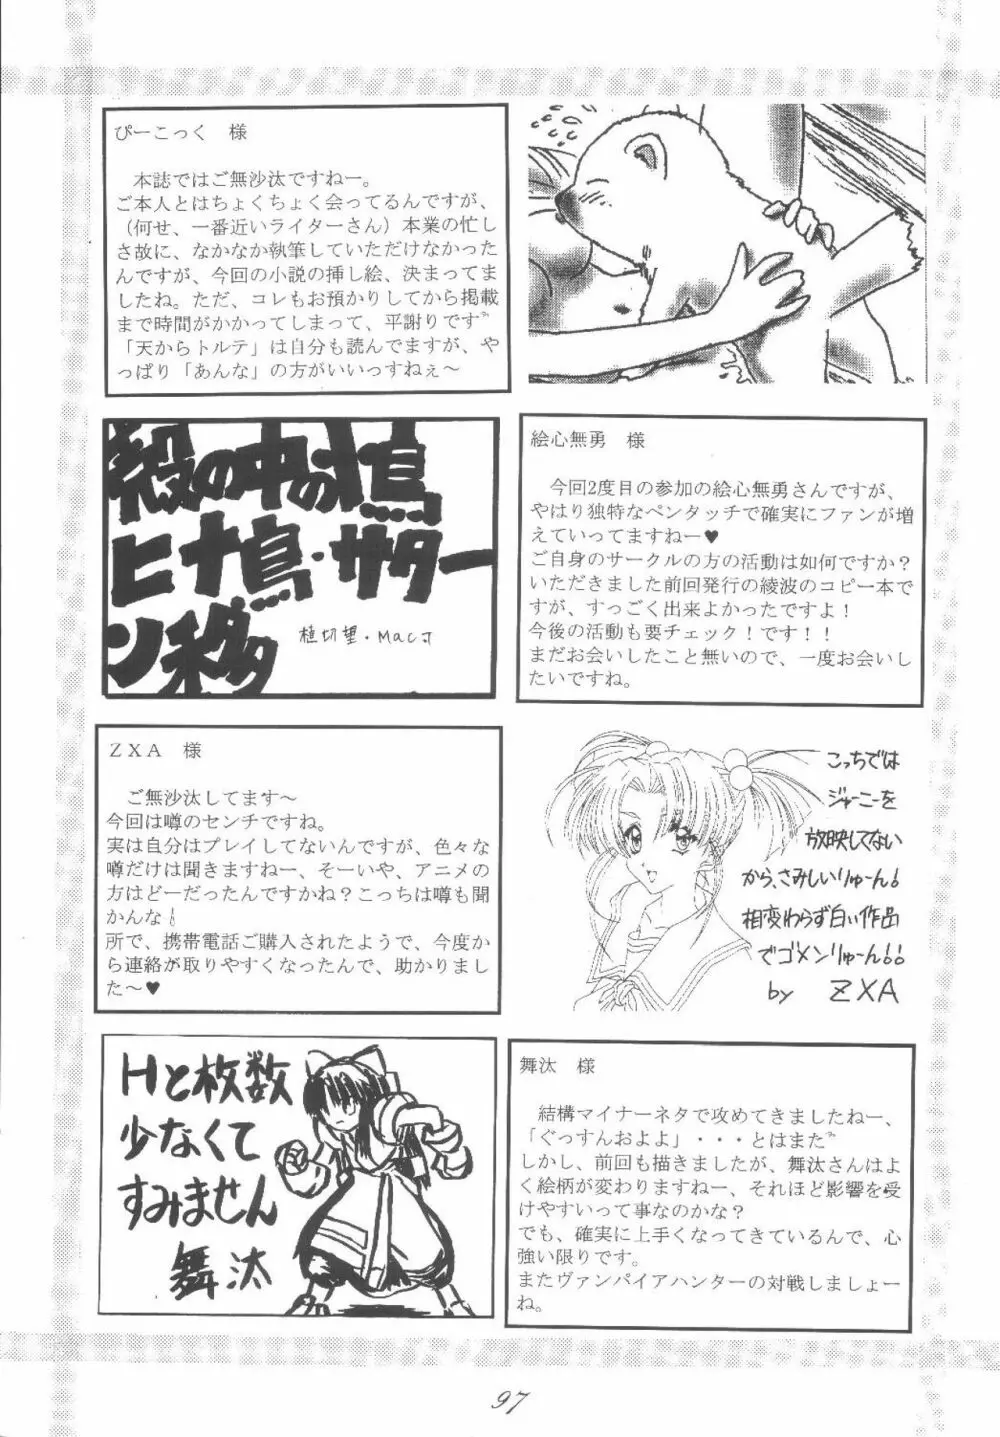 ぴーこっく　様
本誌ではご無沙汰ですねー。
ご本人とはちょくちょく会ってるんですが、
（何せ、一番近いライターさん）本業の忙し
さ故に、なかなか執筆していただけなかった
んですが、今回の小説の挿し絵、決まってま
したね。ただ、コレもお預かりしてから掲載
まで時間がかかってしまって、平謝りです
「天からトルテ」は自分も読んでますが、や
っぱり「あんな」の方がいいっすねぇ～
殻の中の鳥
ヒナ鳥・サター
ン移
植切望・Macすｨ
絵心無勇　様
今回2度目の参加の絵心無勇さんですが、
やはり独特なペンタッチで確実にファンが増
えていってますねー♥
ご自身のサークルの方の活動は如何ですか？
いただきました前回発行の綾波のコピー本で
すが、すっごく出来よかったですよ！
今後の活動も要チェック！です！！
まだお会いしたこと無いので、一度お会いし
たいですね。
ＺＸＡ　様
ご無沙汰してます～
今回は噂のセンチですね。
実は自分はプレイしてないんですが、色々な
噂だけは聞きますねー、そーいや、アニメの
方はどーだったんですかね？こっちは噂も聞
かんな
所で、携帯電話ご購入されたようで、今度か
ら連絡が取りやすくなったんで、助かりまし
た～♥
こっちでは
ジャーニーを
放映してない
から、さみしいりゅーん！
相変わらず白い作品
でゴメンりゅーん！！
by ZXA
Hと枚数
少なくて
すみません
舞汰
舞汰　様
結構マイナーネタで攻めてきましたねー、
「ぐっすんおよよ」・・・とはまた
しかし、前回も描きましたが、舞汰さんはよ
く絵柄が変わりますねー、それほど影響を受
けやすいって事なのかな？
でも、確実に上手くなってきているんで、心
強い限りです。
またヴァンパイアハンターの対戦しましょー
ね。
97